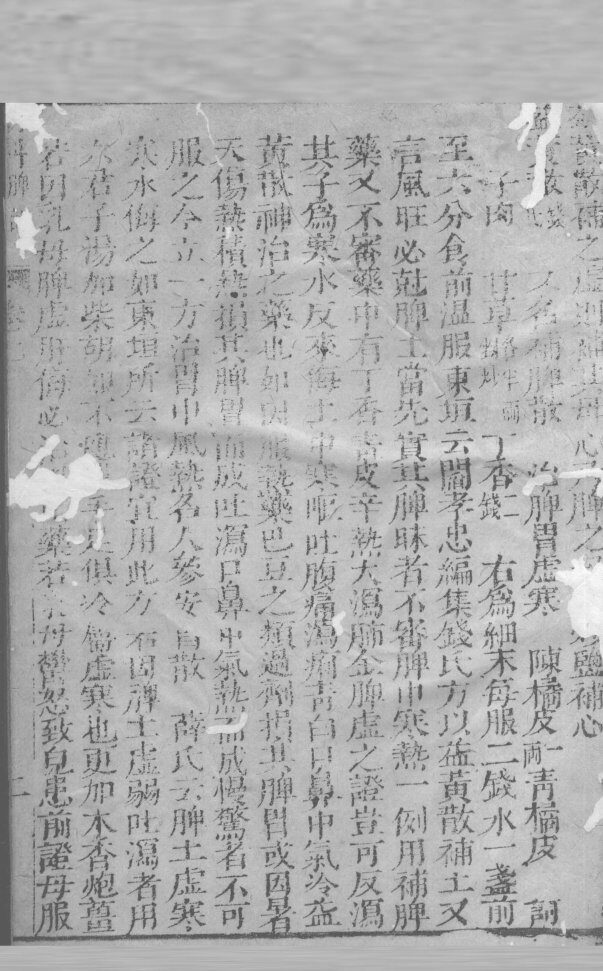 益黃散補之虛則補其母心乃脾之母 鹽補心
益黃散錢氏 又名補脾散 治脾胃虛寒 陳橘皮一兩青橘皮 訶
子肉 甘草 丁香二錢 右爲細末每服二錢水一盞煎
至六分食前溫服東垣云閻孝忠編集錢氏方以益黃散補土又
言風旺必尅脾土當先實其脾昧者不審脾中寒熱一例用補脾
藥又不審藥中有丁香青皮辛熱大瀉肺金脾虛之證豈可反瀉
其子爲寒水反來侮土中寒嘔吐腹痛瀉痢青白口鼻中氣冷益
黃散神治之藥也如因服熱藥巴豆之類過劑損其脾胃或因暑
天傷熱積熱損其脾胃而成吐瀉口鼻中氣熱而成慢驚者不可
服之今立一方治胃中風熱名人參安胃散 薛氏云脾土虛寒
寒水侮之如東垣所云諸證宜用此方 若因脾土虛弱吐瀉者用
六君子湯加柴胡如不應 手足俱冷屬虛寒也更加木香炮薑
若因乳母脾虛肝侮必 藥若 母鬱怒致兒患前證母服
二